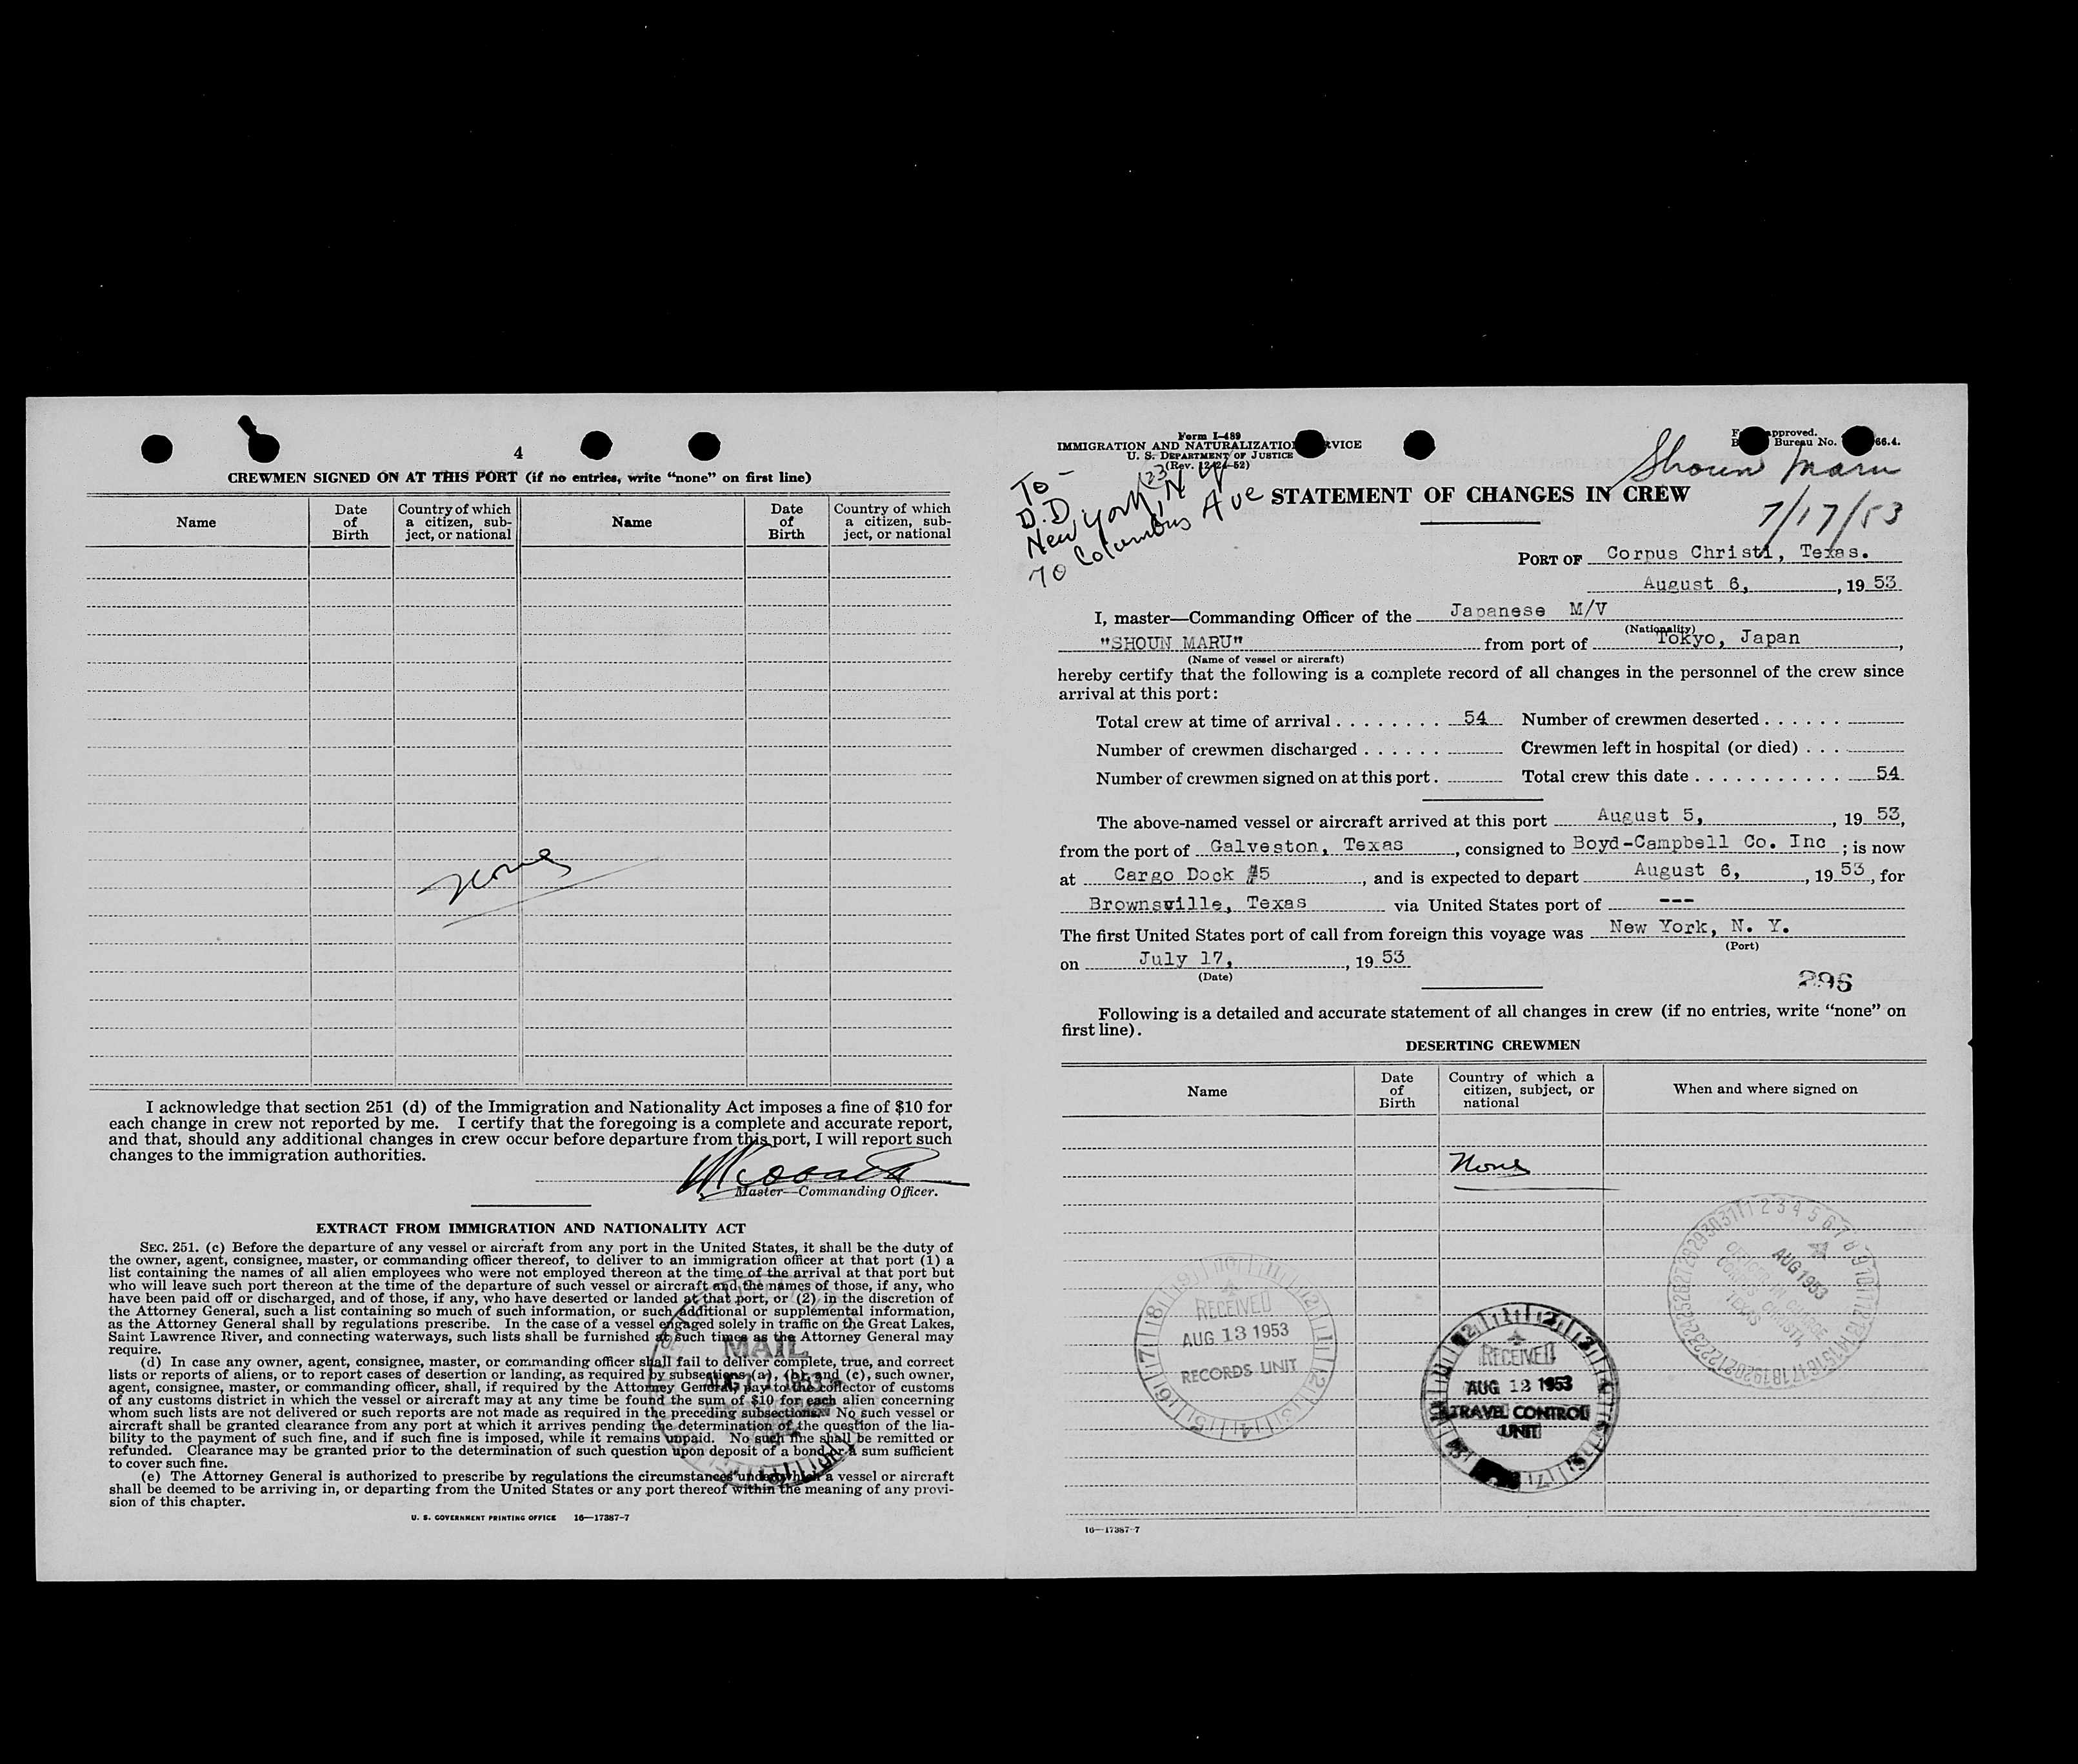 4
CREWMEN SIGNED ON AT THIS PORT (if no entries, write "none" on first line)
Name
Date of Birth
Country of which a citizen, subject, or national
Name
Date of Birth
Country of which a citizen, subject, or national
None
I acknowledge that section 251 (d) of the Immigration and Nationality Act imposes a fine of $10 for
each change in crew not reported by me. I certify that the foregoing is a complete and accurate report,
and that, should any additional changes in crew occur before departure from this port, I will report such
changes to the immigration authorities.
Master—Commanding Officer.
EXTRACT FROM IMMIGRATION AND NATIONALITY ACT
SEC. 251. (c) Before the departure of any vessel or aircraft from any port in the United States, it shall be the duty of
the owner, agent, consignee, master, or commanding officer thereof, to deliver to an immigration officer at that port (1) a
list containing the names of all alien employees who were not employed thereon at the time of the arrival at that port but
who will leave such port thereon at the time of the departure of such vessel or aircraft and the names of those, if any, who
have been paid off or discharged, and of those, if any, who have deserted or landed at that port, or (2) in the discretion of
the Attorney General, such a list containing so much of such information, or such additional or supplemental information,
as the Attorney General shall by regulations prescribe. In the case of a vessel engaged solely in traffic on the Great Lakes,
Saint Lawrence River, and connecting waterways, such lists shall be furnished at such times as the Attorney General may
require.
(d) In case any owner, agent, consignee, master, or commanding officer shall fail to deliver complete, true, and correct
lists or reports of aliens, or to report cases of desertion or landing, as required by subsections (a), (b), and (c), such owner,
agent, consignee, master, or commanding officer, shall, if required by the Attorney General, pay to the collector of customs
of any customs district in which the vessel or aircraft may at any time be found the sum of $10 for each alien concerning
whom such lists are not delivered or such reports are not made as required in the preceding subsections. No such vessel or
aircraft shall be granted clearance from any port at which it arrives pending the determination of the question of the lia-
bility to the payment of such fine, and if such fine is imposed, while it remains unpaid. No such fine shall be remitted or
refunded. Clearance may be granted prior to the determination of such question upon deposit of a bond or a sum sufficient
to cover such fine.
(e) The Attorney General is authorized to prescribe by regulations the circumstances under which a vessel or aircraft
shall be deemed to be arriving in, or departing from the United States or any port thereof within the meaning of any provi-
sion of this chapter.
MAIL
U. S. GOVERNMENT PRINTING OFFICE 16—17387-7
Form I-489
IMMIGRATION AND NATURALIZATION SERVICE
U. S. DEPARTMENT OF JUSTICE
(Rev. 12-24-52)
pproved.
Bureau No. 66.4.
Shoun Maru
7/17/53
To -
D.D.
New York, N Y
70 Columbus Ave
STATEMENT OF CHANGES IN CREW
PORT OF Corpus Christi, Texas.
August 6, , 19 53
I, master—Commanding Officer of the Japanese M/V
(Nationality)
"SHOUN MARU" from port of Tokyo, Japan ,
(Name of vessel or aircraft)
hereby certify that the following is a complete record of all changes in the personnel of the crew since
arrival at this port:
Total crew at time of arrival . . . . . . . . 54 Number of crewmen deserted . . . . . .
Number of crewmen discharged . . . . . . Crewmen left in hospital (or died) . . .
Number of crewmen signed on at this port . Total crew this date . . . . . . . . . . . 54
The above-named vessel or aircraft arrived at this port August 5, , 19 53,
from the port of Galveston, Texas , consigned to Boyd-Campbell Co. Inc ; is now
at Cargo Dock #5 , and is expected to depart August 6, , 19 53 , for
Brownsville, Texas via United States port of ---
The first United States port of call from foreign this voyage was New York, N. Y.
(Port)
on July 17, , 19 53
(Date)
296
Following is a detailed and accurate statement of all changes in crew (if no entries, write "none" on
first line).
DESERTING CREWMEN
Name
Date of Birth
Country of which a citizen, subject, or national
When and where signed on
None
RECEIVED
AUG 13 1953
RECORDS UNIT
RECEIVED
AUG 12 1953
TRAVEL CONTROL
UNIT
AUG 1953
OFFICER IN CHARGE
CORPUS CHRISTI,
TEXAS
16—17387-7